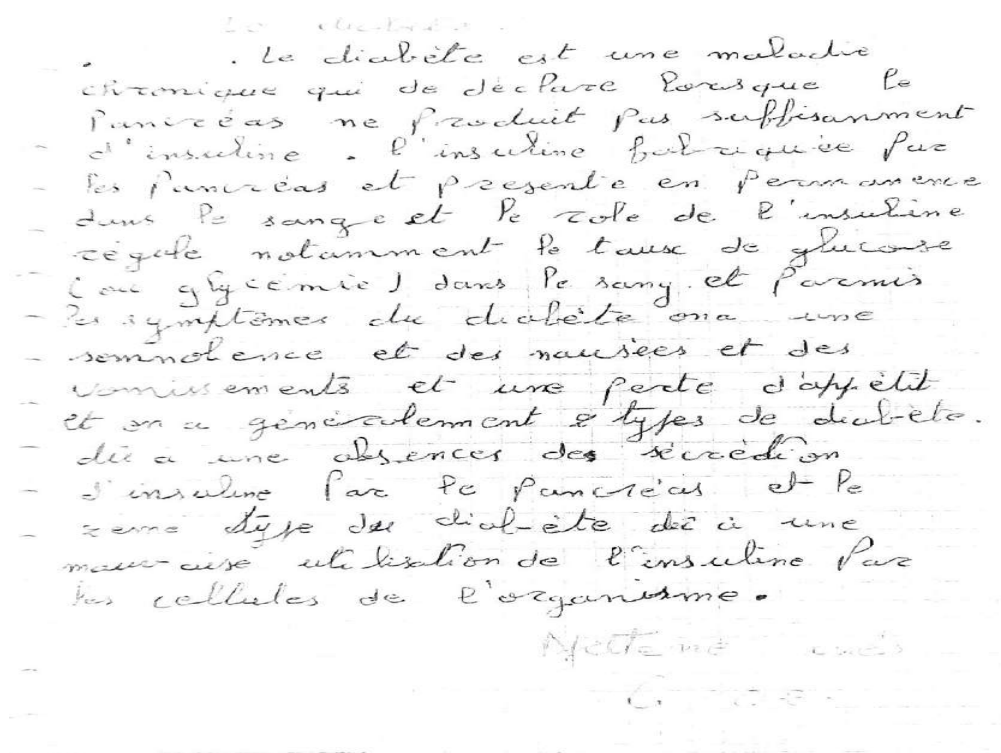 Le diabète
. . Le diabète est une maladie
chronique qui de déclare lorsque le
Pancréas ne produit pas suffisanment
d'insuline . l'insuline fabriquée Par
les Pancréas et Présente en Permanence
dans le sang et le role de l'insuline
régule notamment le taux de glucose
( ou glycémie ) dans le sang . et Parmis
les symptômes du diabète ona une
semnolence et des nausées et des
vomissements et une perte d'appétit
et on a généralenment 2 types de diabète.
dû a une absences des sécrédion
d'insuline Par le pancréas et le
2eme type du diabète dû à une
mauvaise utilisation de l'insuline Par
les cellules de l'organisme.